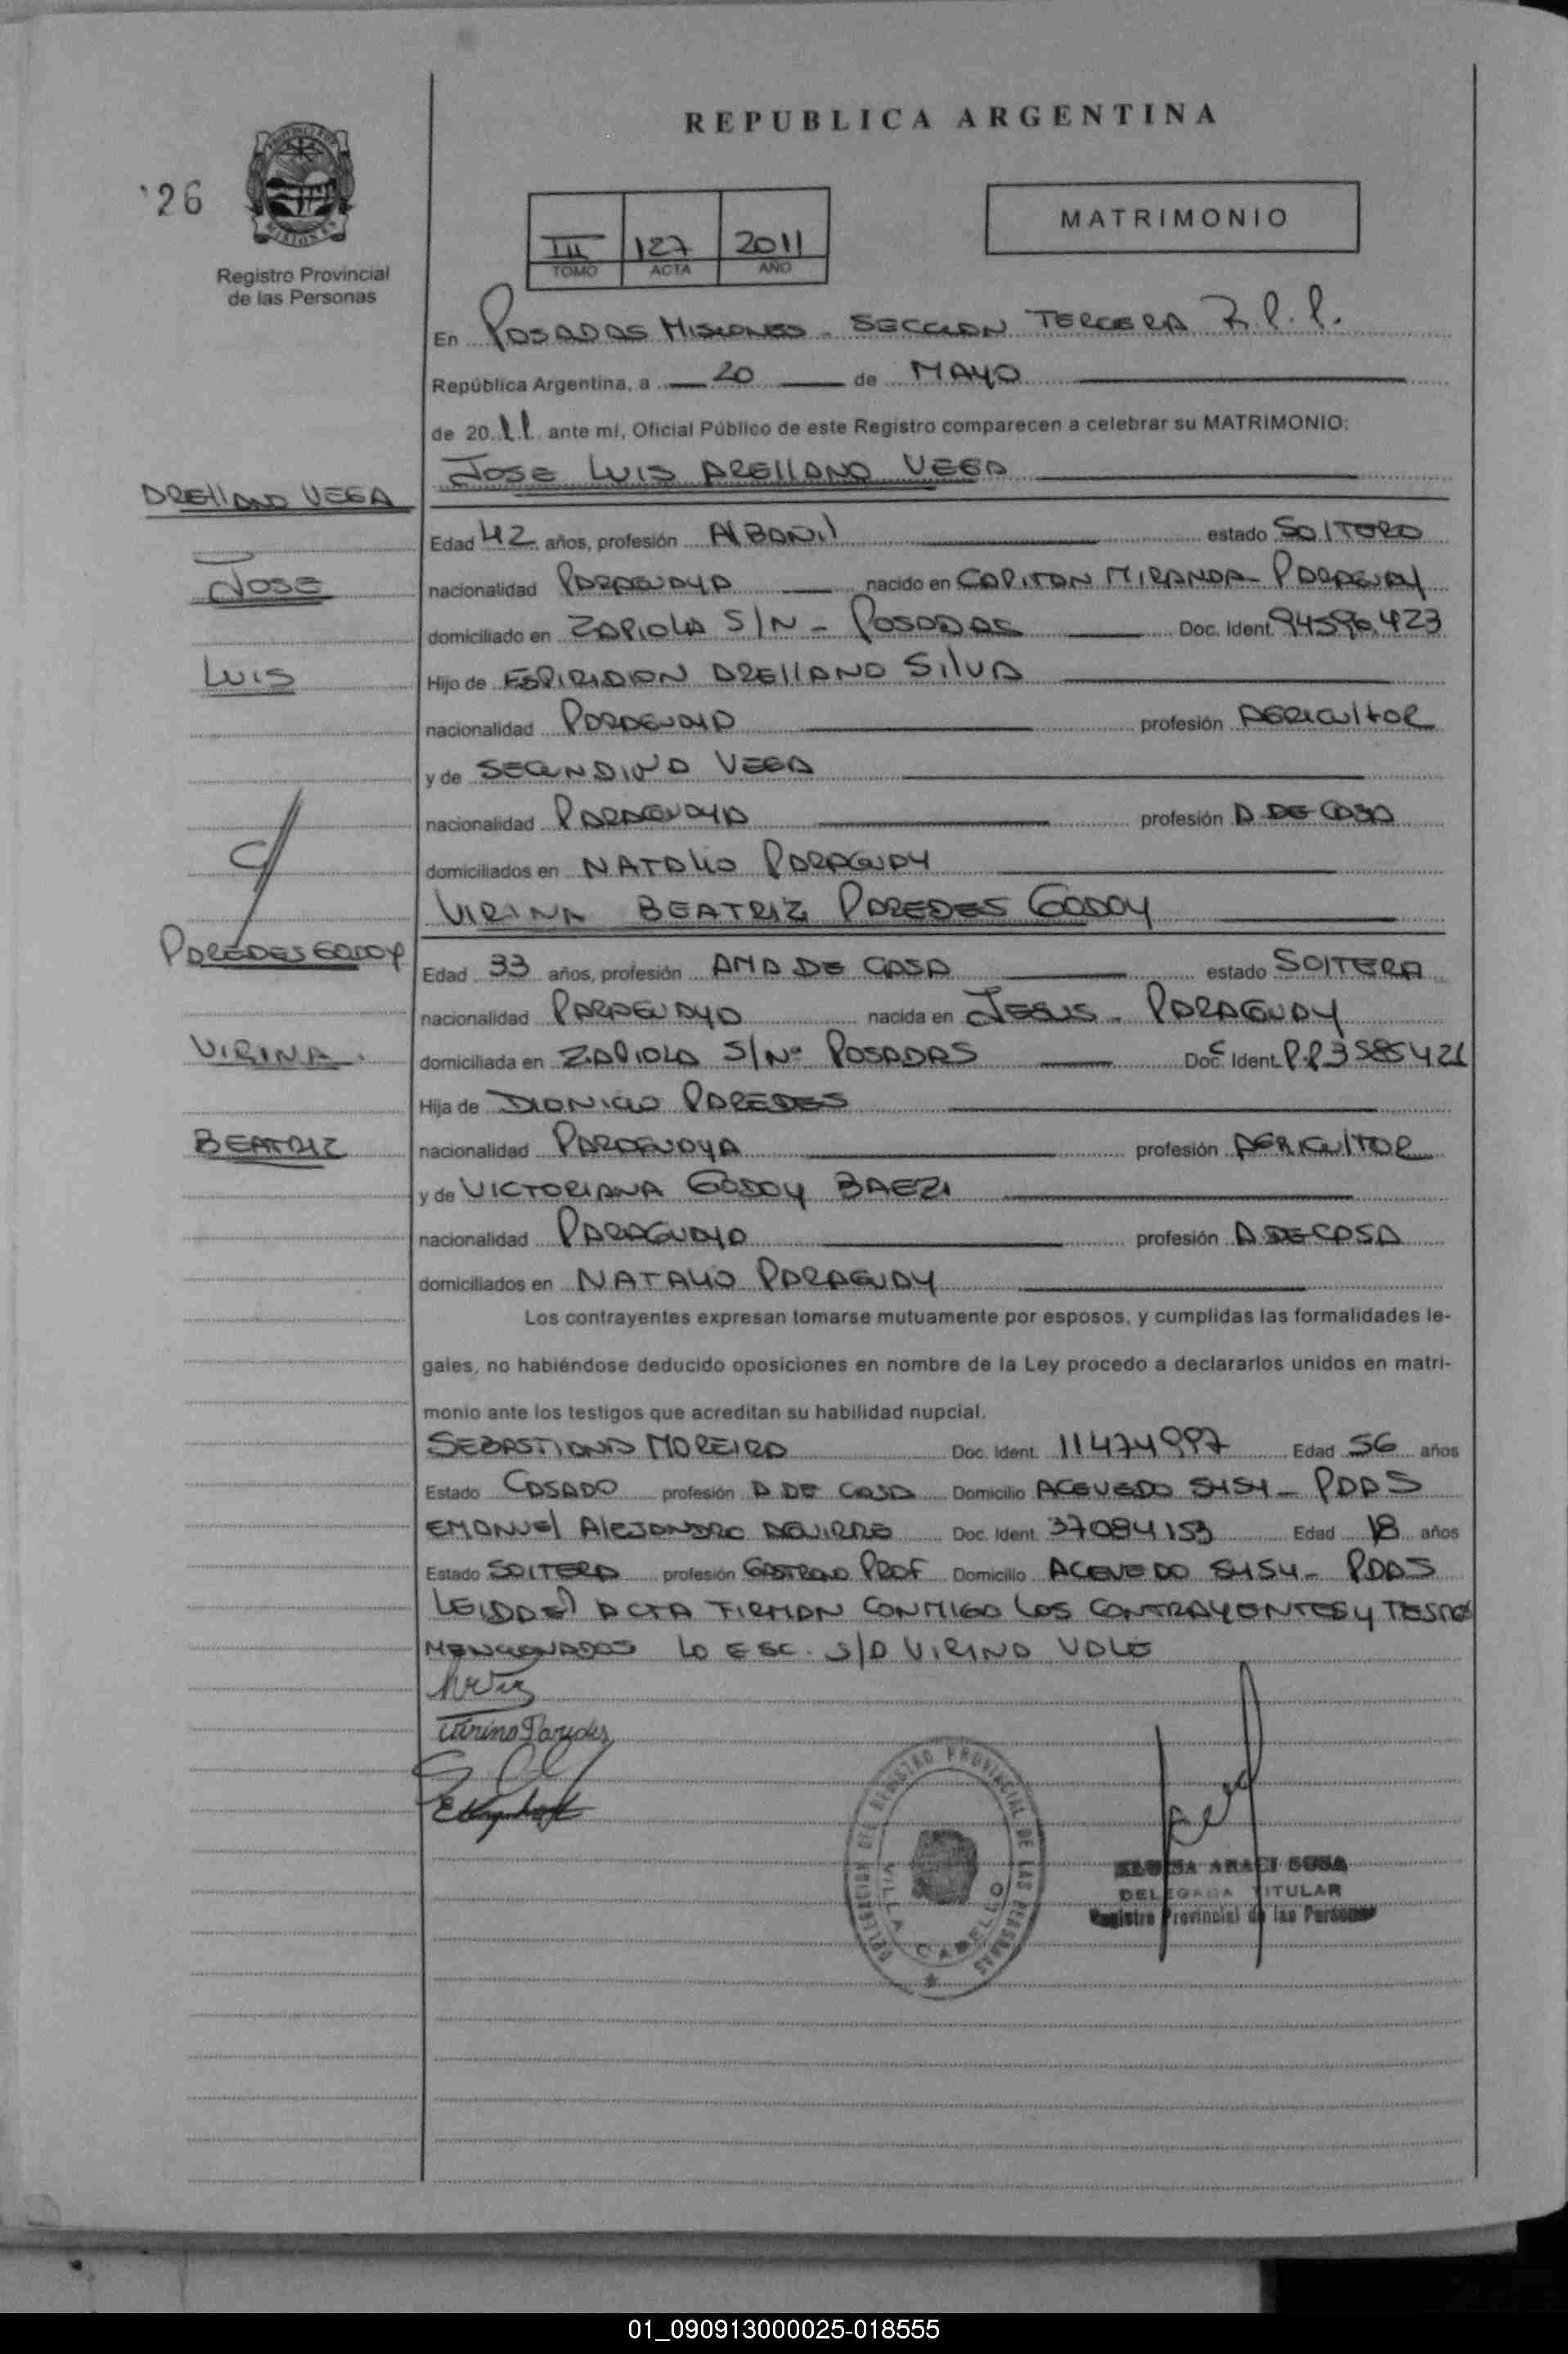 REPUBLICA ARGENTINA
26
MATRIMONIO
III 127 2011
TOMO ACTA AÑO
Registro Provincial
de las Personas
En POSADAS MISIONES - SECCION TERCERA R.P.P.
República Argentina, a 20 de MAYO
de 2011 ante mí, Oficial Público de este Registro comparecen a celebrar su MATRIMONIO:
JOSE LUIS ARELLANO VEGA
ARELLANO VEGA
Edad 42 años, profesión ALBAÑIL estado SOLTERO
JOSE
nacionalidad PARAGUAYA nacido en CAPITAN MIRANDA - PARAGUAY
domiciliado en ZAPIOLA S/N - POSADAS Doc. Ident. 94596.423
LUIS
Hijo de ESPIRIDION ARELLANO SILVA
nacionalidad PARAGUAYA profesión AGRICULTOR
y de SECUNDINA VEGA
nacionalidad PARAGUAYA profesión A DE CASA
C/
domiciliados en NATALIO PARAGUAY
VIRINA BEATRIZ PAREDES GODOY
PAREDES GODOY
Edad 33 años, profesión AMA DE CASA estado SOLTERA
nacionalidad PARAGUAYA nacida en JESUS - PARAGUAY
VIRINA
domiciliada en ZAPIOLA S/Nº POSADAS Doc. Ident. P.P3585421
Hija de DIONICIO PAREDES
BEATRIZ
nacionalidad PARAGUAYA profesión AGRICULTOR
y de VICTORIANA GODOY BAEZ
nacionalidad PARAGUAYA profesión A DE CASA
domiciliados en NATALIO PARAGUAY
Los contrayentes expresan tomarse mutuamente por esposos, y cumplidas las formalidades le-
gales, no habiéndose deducido oposiciones en nombre de la Ley procedo a declararlos unidos en matri-
monio ante los testigos que acreditan su habilidad nupcial.
SEBASTIANA MOREIRA Doc. Ident. 11474997 Edad 56 años
Estado CASADO profesión A DE CASA Domicilio ACEVEDO 5454 - PDAS
EMANUEL ALEJANDRO AGUIRRE Doc. Ident. 37084153 Edad 18 años
Estado SOLTERA profesión PROF Domicilio ACEVEDO 5454 - PDAS
LEIDA EL ACTA FIRMAN CONMIGO LOS CONTRAYENTES Y TESTIGOS
MENCIONADOS LO ESC. S/A VIRINA VALE
Virina Paredes
DELEGACION DEL REGISTRO PROVINCIAL DE LAS PERSONAS
VILLA CABELLO
ARACI SOSA
DELEGADA TITULAR
Registro Provincial de las Personas
01_090913000025-018555